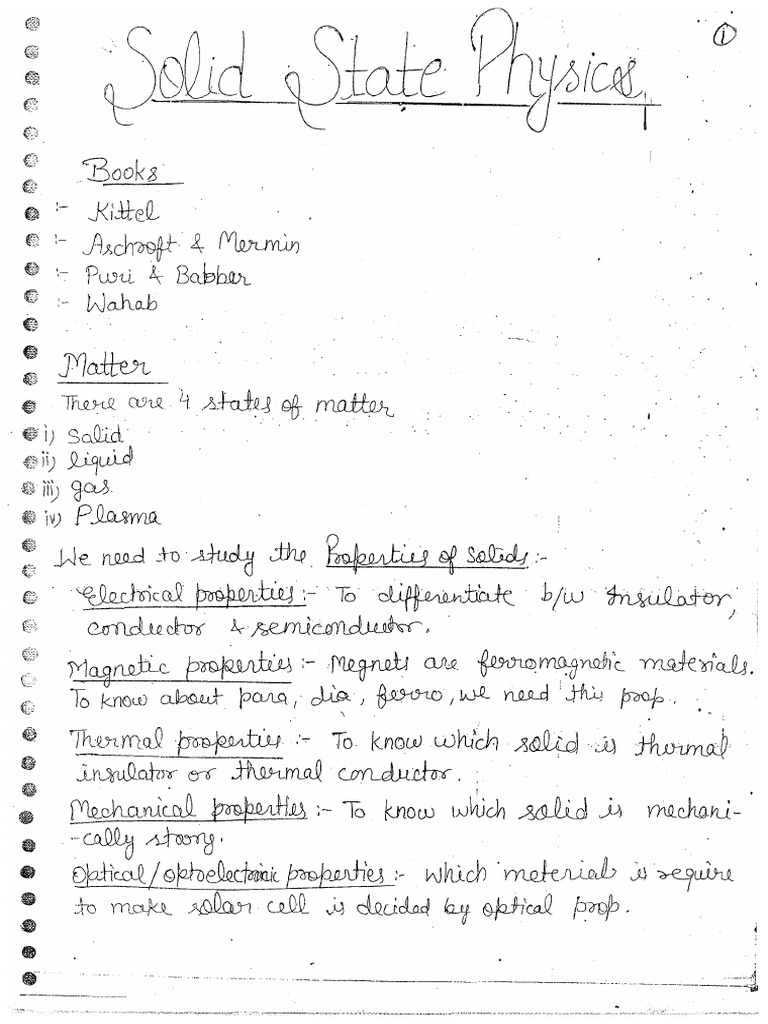 1
Solid State Physics
Books
:- Kittel
:- Aschroft & Mermin
:- Puri & Babber
:- Wahab
Matter
There are 4 states of matter
i) Salid
ii) liquid
iii) gas
iv) Plasma
We need to study the Properties of Solids:-
Electrical properties:- To differentiate b/w Insulator,
conductor & semiconductor.
Magnetic properties:- Megnets are ferromagnetic materials.
To know about para, dia, ferro, we need this prop.
Thermal properties:- To know which solid is thermal
insulator or thermal conductor.
Mechanical properties:- To know which solid is mechani-
-cally storng.
Optical/optoelectronic properties:- which material is require
to make solar cell is decided by optical prop.